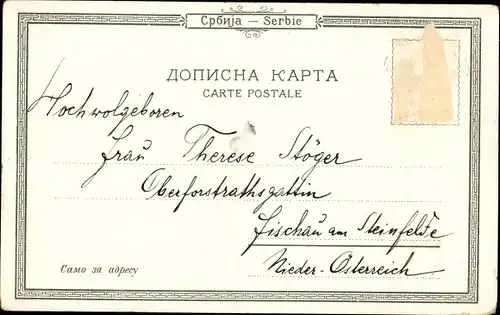 Србија — Serbie
ДОПИСНА КАРТА
CARTE POSTALE
Hochwolgeboren
Frau Therese Stöger
Oberforstrathsgattin
Fischau am Steinfelde
Nieder-Österreich
Само за адресу